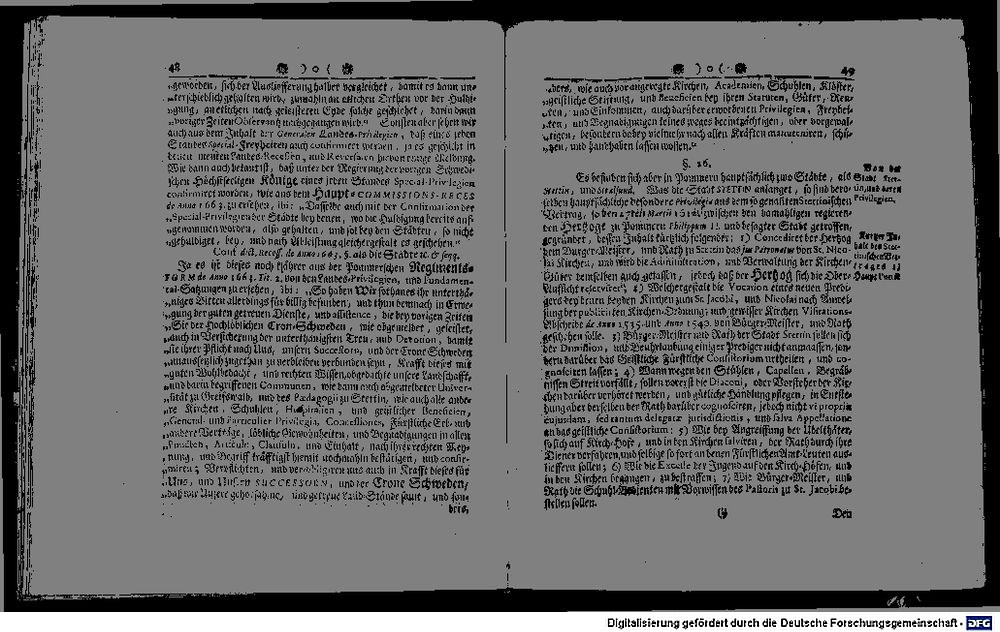 48 ) o (
geworden, sich der Auslieferung halber vergleichet, damit es dann un-
terschiedlich gehalten wird, zumahln an etlichen Orthen vor der Huldi-
gung, an etlichen nach geleistetem Eyde solche geschichet, darin dann
voriger Zeiten Observanz nachgegangen wird." Sonsten aber sehen wir
auch aus dem Inhalt der Generalen Landes-Privilegien, daß eines jeden
Standes Special-Freyheiten auch confirmiret werden, ja es geschicht in
denen meisten Landes-Recessen, und Reversalen hievon einige Meldung.
Wie dann auch bekannt ist, daß unter der Regierung der vorigen Schwedi-
schen Höchstseeligen Könige eines jeden Standes Special-Privilegien
confirmiret worden, wie aus dem Haupt-COMMISSIONS-RECES
de Anno 1663. zu ersehen, ibi: „Dasselbe auch mit der Confirmation der
„Special-Privilegien der Städte bey denen, wo die Huldigung bereits auf-
„genommen worden, also gehalten, und sol bey den Städten, so nicht
„gehuldiget, bey, und nach Ableistung gleichergestalt es geschehen."
Conf. dict. Recess. de Anno 1663. §. als die Städte &c. & seqq.
Ja es ist dieses noch klährer aus der Pommerschen Regiments-
FORM de Anno 1663. Tit. 2. von den Landes-Privilegien, und Fundamen-
tal-Satzungen zu ersehen, ibi: „So haben Wir sothanes ihr unterthä-
„niges Bitten allerdings für billig befunden, und thun demnach in Erwe-
„gung der guten getreuen Dienste, und assistence, die bey vorigen Zeiten
„Sie der Hochlöblichen Cron-Schweden, wie obgemeldet, geleistet,
„auch in Versicherung der unterthänigsten Treu, und Devotion, damit
„sie ihrer Pflicht nach Uns, unsern Successorn, und der Crone Schweden
„unausetzlich zugethan zu verbleiben verbunden seyn, Krafft dieses mit
„guten Wohlbedacht, und rechten Wissen, obgedachte unsere Landschafft,
„und darin begriffenen Communen, wie dann auch obgemeldeter Univer-
„sität zu Greifswald, und des Pædagogii zu Stettin, wie auch alle ande-
„re Kirchen, Schuhlen, Hospitalien, und geistlicher Beneficien,
„General- und Particulier Privilegia, Concessiones, Fürstliche Erb- und
„andere Verträge, löbliche Gewohnheiten, und Begnadigungen in allen
„Puncten, Articuln, Clausuln, und Einhalt, nach ihrer rechten Mey-
„nung, und Begriff kräfftigst hiemit nochmahln bestätigen, und confir-
„miren; Verpflichten, und verobligiren uns auch in Krafft dieses für
„Uns, und Unsern SUCCESSORN, und der Crone Schweden,
„daß wir Unsere gehorsahme, und getreue Land-Stände samt, und son-
ders,
) o ( 49
„ders, wie auch vor angeregte Kirchen, Academien, Schuhlen, Klöster,
„geistliche Stiftung, und Beneficien bey ihren Statuten, Güter, Ren-
„ten, und Einkommen, auch darüber erworbenen Privilegien, Freyhei-
„ten, und Begnadigungen keines weges beeinträchtigen, oder vergewal-
„tigen, besondern dabey vielmehr nach allen Kräften manuteniren, schü-
„tzen, und handhaben lassen wollen."
§. 26.
Es befinden sich aber in Pommern hauptsächlich zwo Städte, als
Stettin, und Stralsund. Was die Stadt STETTIN anlanget, so sind dero-
selben hauptsächliche besondere Privilegia aus dem so genanten Stettinischen
Vertrag, so den 27ten Martii 1612. zwischen den damahligen regieren-
den Hertzoge zu Pommern Philippum II. und besagter Stadt getroffen,
gegründet, dessen Inhalt kürtzlich folgender: 1) Concediret der Hertzog
dem Bürger-Meister, und Rath zu Stettin das jus Patronatus von St. Nico-
lai Kirchen, und wird die Administration, und Verwaltung der Kirchen-
Güter denselben auch gelassen, jedoch daß der Hertzog sich die Ober-
Aufsicht reserviret; 2) Welchergestalt die Vocation eines neuen Predi-
gers bey denen beyden Kirchen zum St. Jacobi, und Nicolai nach Anwei-
sung der publicirten Kirchen-Ordnung, und gewisser Kirchen Visitations-
Abscheide de Anno 1535. und Anno 1540. von Bürger-Meister, und Rath
geschehen solle. 3) Bürger-Meister und Rath der Stadt Stettin sollen sich
der Dimission, und Beurlaubung einiger Prediger nicht anmaassen, son-
dern darüber das Geistliche Fürstliche Consistorium urtheilen, und co-
gnosciren lassen; 4) Wann wegen den Stühlen, Capellen, Begräb-
nissen Streit vorfällt, sollen vorerst die Diaconi, oder Vorsteher der Kir-
chen darüber verhöret werden, und gütliche Handlung pflegen, in Entste-
hung aber derselben der Rath darüber cognosciren, jedoch nicht vi propriæ
cujusdam, sed tantum delegatæ jurisdictionis, und salva Appellatione
an das geistliche Consistorium: 5) Wie bey Angreiffung der Ubelthäter,
so sich auf Kirch-Hofe, und in den Kirchen salviren, der Rath durch ihre
Diener verfahren, und selbige so fort an denen Fürstlichen Amt-Leuten aus-
lieffern sollen; 6) Wie die Excesse der Jugend auf den Kirch-Höfen, und
in den Kirchen begangen, zu bestraffen; 7) Wie Bürger-Meister, und
Rath die Schuhl-Bedienten mit Vorwissen des Pastoris zu St. Jacobi be-
stellen sollen.
Den
Von der
Stadt Stet-
tin, und deren
Privilegien.
Kurtzer In-
halt des Stet-
tinischen Ver-
trages in
Haupt Puncte
Digitalisierung gefördert durch die Deutsche Forschungsgemeinschaft - DFG